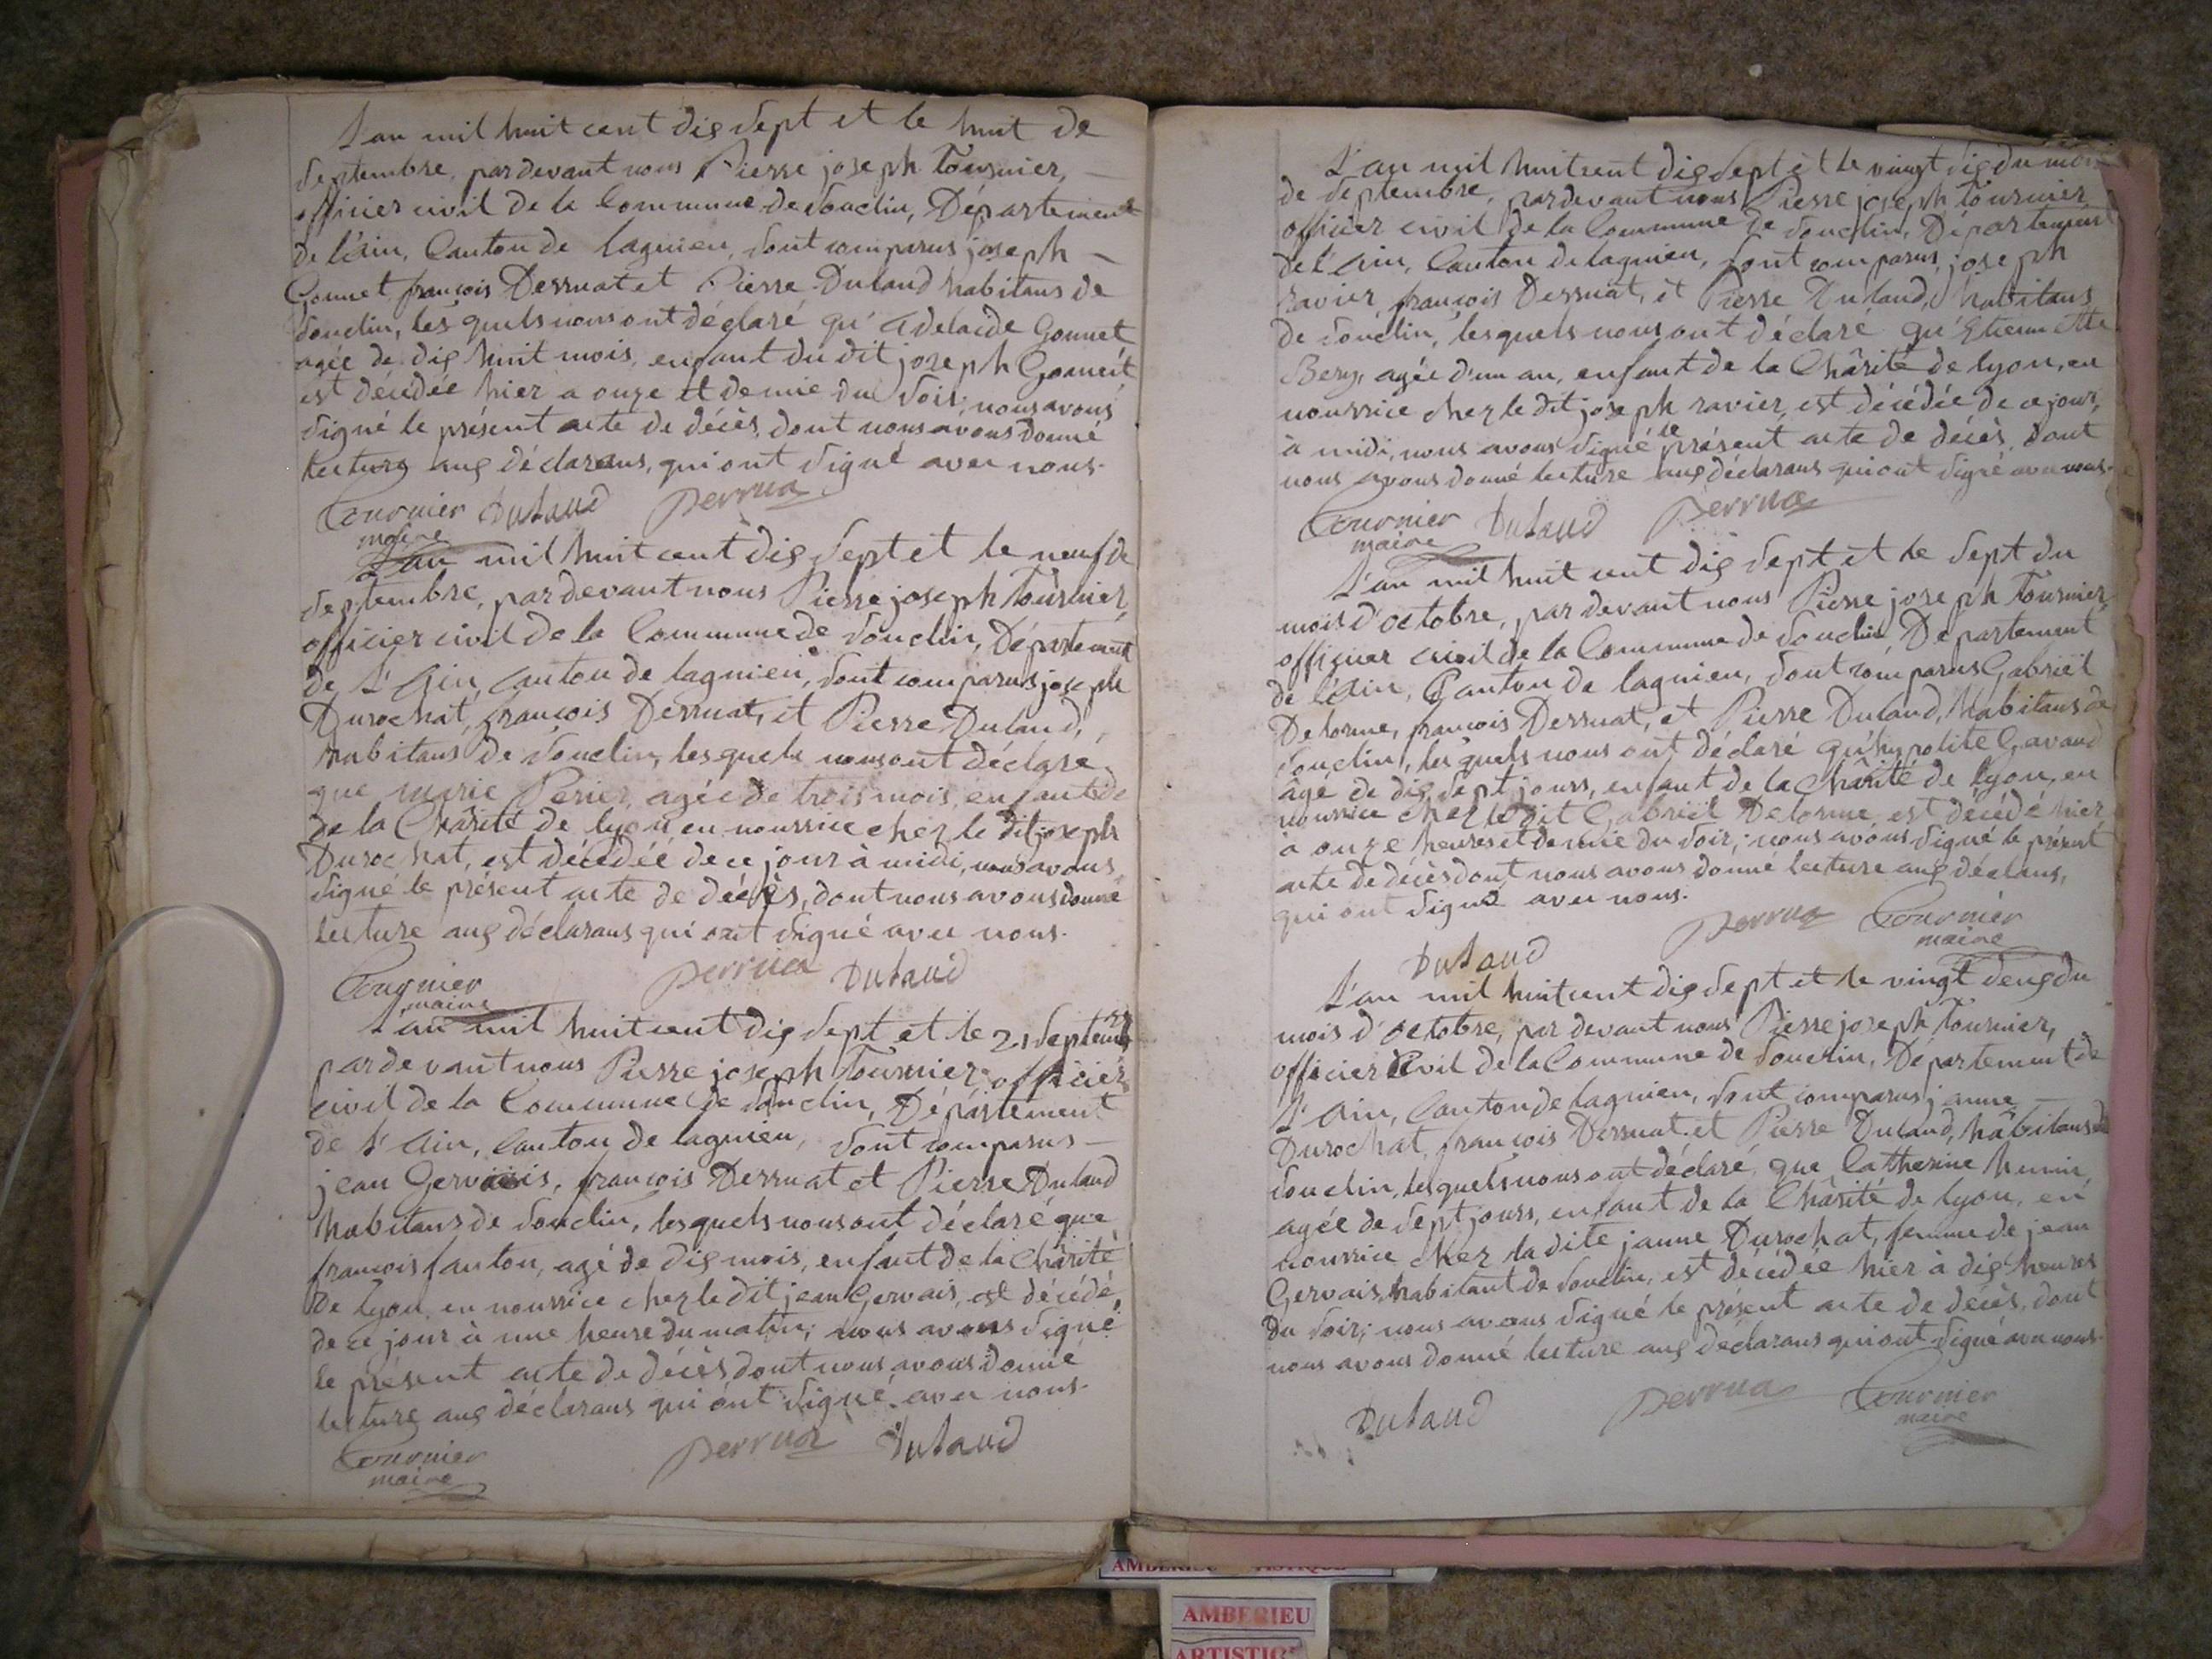 L'an mil huit cent dix sept et le huit de
septembre, pardevant nous Pierre joseph Tournier,
officier civil de la Commune de Souclin, Département
de l'Ain, Canton de lagnieu, sont comparus joseph
Gonnet françois Derruat et Pierre Dulaud habitans de
Souclin, lesquels nous ont déclaré qu'adelaide Gonnet
agée de dix huit mois, enfant du dit joseph Gonnet,
est décédée hier a onze et demie du soir; nous avons
signé le présent acte de décès, dont nous avons donné
lecture aux déclarans, qui ont signé avec nous.
Tournier Dulaud Derrua
maire
L'an mil huit cent dix sept et le neuf de
septembre, pardevant nous Pierre joseph Tournier,
officier civil de la Commune de Souclin, Département
de L'Ain, canton de lagnieu, sont comparus joseph
Durochat, françois Derruat, et Pierre Dulaud,
habitans de Souclin, lesquels nous ont déclaré
que marie Perier, agée de trois mois, enfant de
de la Chârité de lyon en nourrice chez le dit joseph
Durochat, est décédée de ce jour à midi, nous avons
signé le présent acte de décès, dont nous avons donné
lecture aux déclarans qui ont signé avec nous.
Tournier Derrua Dulaud
maire
L'an mil huit cent dix sept et le 21 septembre
pardevant nous Pierre joseph Tournier, officier
civil de la Commune de Souclin, Département
de L'Ain, Canton de lagnieu, sont comparus
jean Gervais, françois Derruat et Pierre Dulaud
habitans de Souclin, lesquels nous ont déclaré que
françois fanton, agé de dix mois, enfant de la Chârité
de lyon en nourrice chez le dit jean Gervais, est décédé,
de ce jour à une heure du matin; nous avons signé
le présent acte de décès, dont nous avons donné
lecture aux déclarans qui ont signé avec nous.
Tournier Derrua Dulaud
maire
L'an mil huit cent dix sept et le vingt six du mois
de septembre, pardevant nous Pierre joseph Tournier
officier civil de la Commune de Souclin, Département
de l'Ain, Canton de lagnieu, sont comparus joseph
ravier, françois Derruat, et Pierre Dulaud, habitans
de Souclin, lesquels nous ont déclaré qu'Etiennette
Bery, agée d'un an, enfant de la Chârité de lyon, en
nourrice chez le dit joseph ravier, est décédée de ce jour,
à midi, nous avons signé le présent acte de décès, dont
nous avons donné lecture aux déclarans qui ont signé avec nous.
Tournier Dulaud Derrua
maire
L'an mil huit cent dix sept et le sept du
mois d'octobre, par devant nous Pierre joseph Tournier,
officier civil de la Commune de Souclin Département
de l'Ain, Canton de lagnieu, sont comparus Gabriël
Delorme, françois Derruat, et Pierre Dulaud, habitans de
Souclin, lesquels nous ont déclaré qu'hypolite Gavaud
agé de dix sept jours, enfant de la Chârité de lyon, en
nourrice chez le dit Gabriël Delorme, est décédé hier
à onze heures et demie du soir; nous avons signé le présent
acte de décès dont nous avons donné lecture aux déclans,
qui ont signé avec nous.
Dulaud Derrua Tournier
maire
L'an mil huit cent dix sept et le vingt deux du
mois d'octobre, par devant nous Pierre joseph Tournier,
officier civil de la Commune de Souclin, Département de
L'Ain, Canton de lagnieu, sont comparus janne
Durochat, françois Derruat et Pierre Dulaud, habitans de
Souclin, lesquels nous ont déclaré, que Catherine henin,
agée de sept jours, enfant de la Chârité de lyon, en
nourrice chez la dite janne Durochat, femme de jean
Gervais, habitant de Souclin, est décédée hier à dix heures
du soir; nous avons signé le présent acte de décès, dont
nous avons donné lecture aux déclarans qui ont signé avec nous.
Dulaud Derrua Tournier
maire
AMBERIEU
ARTISTIQ